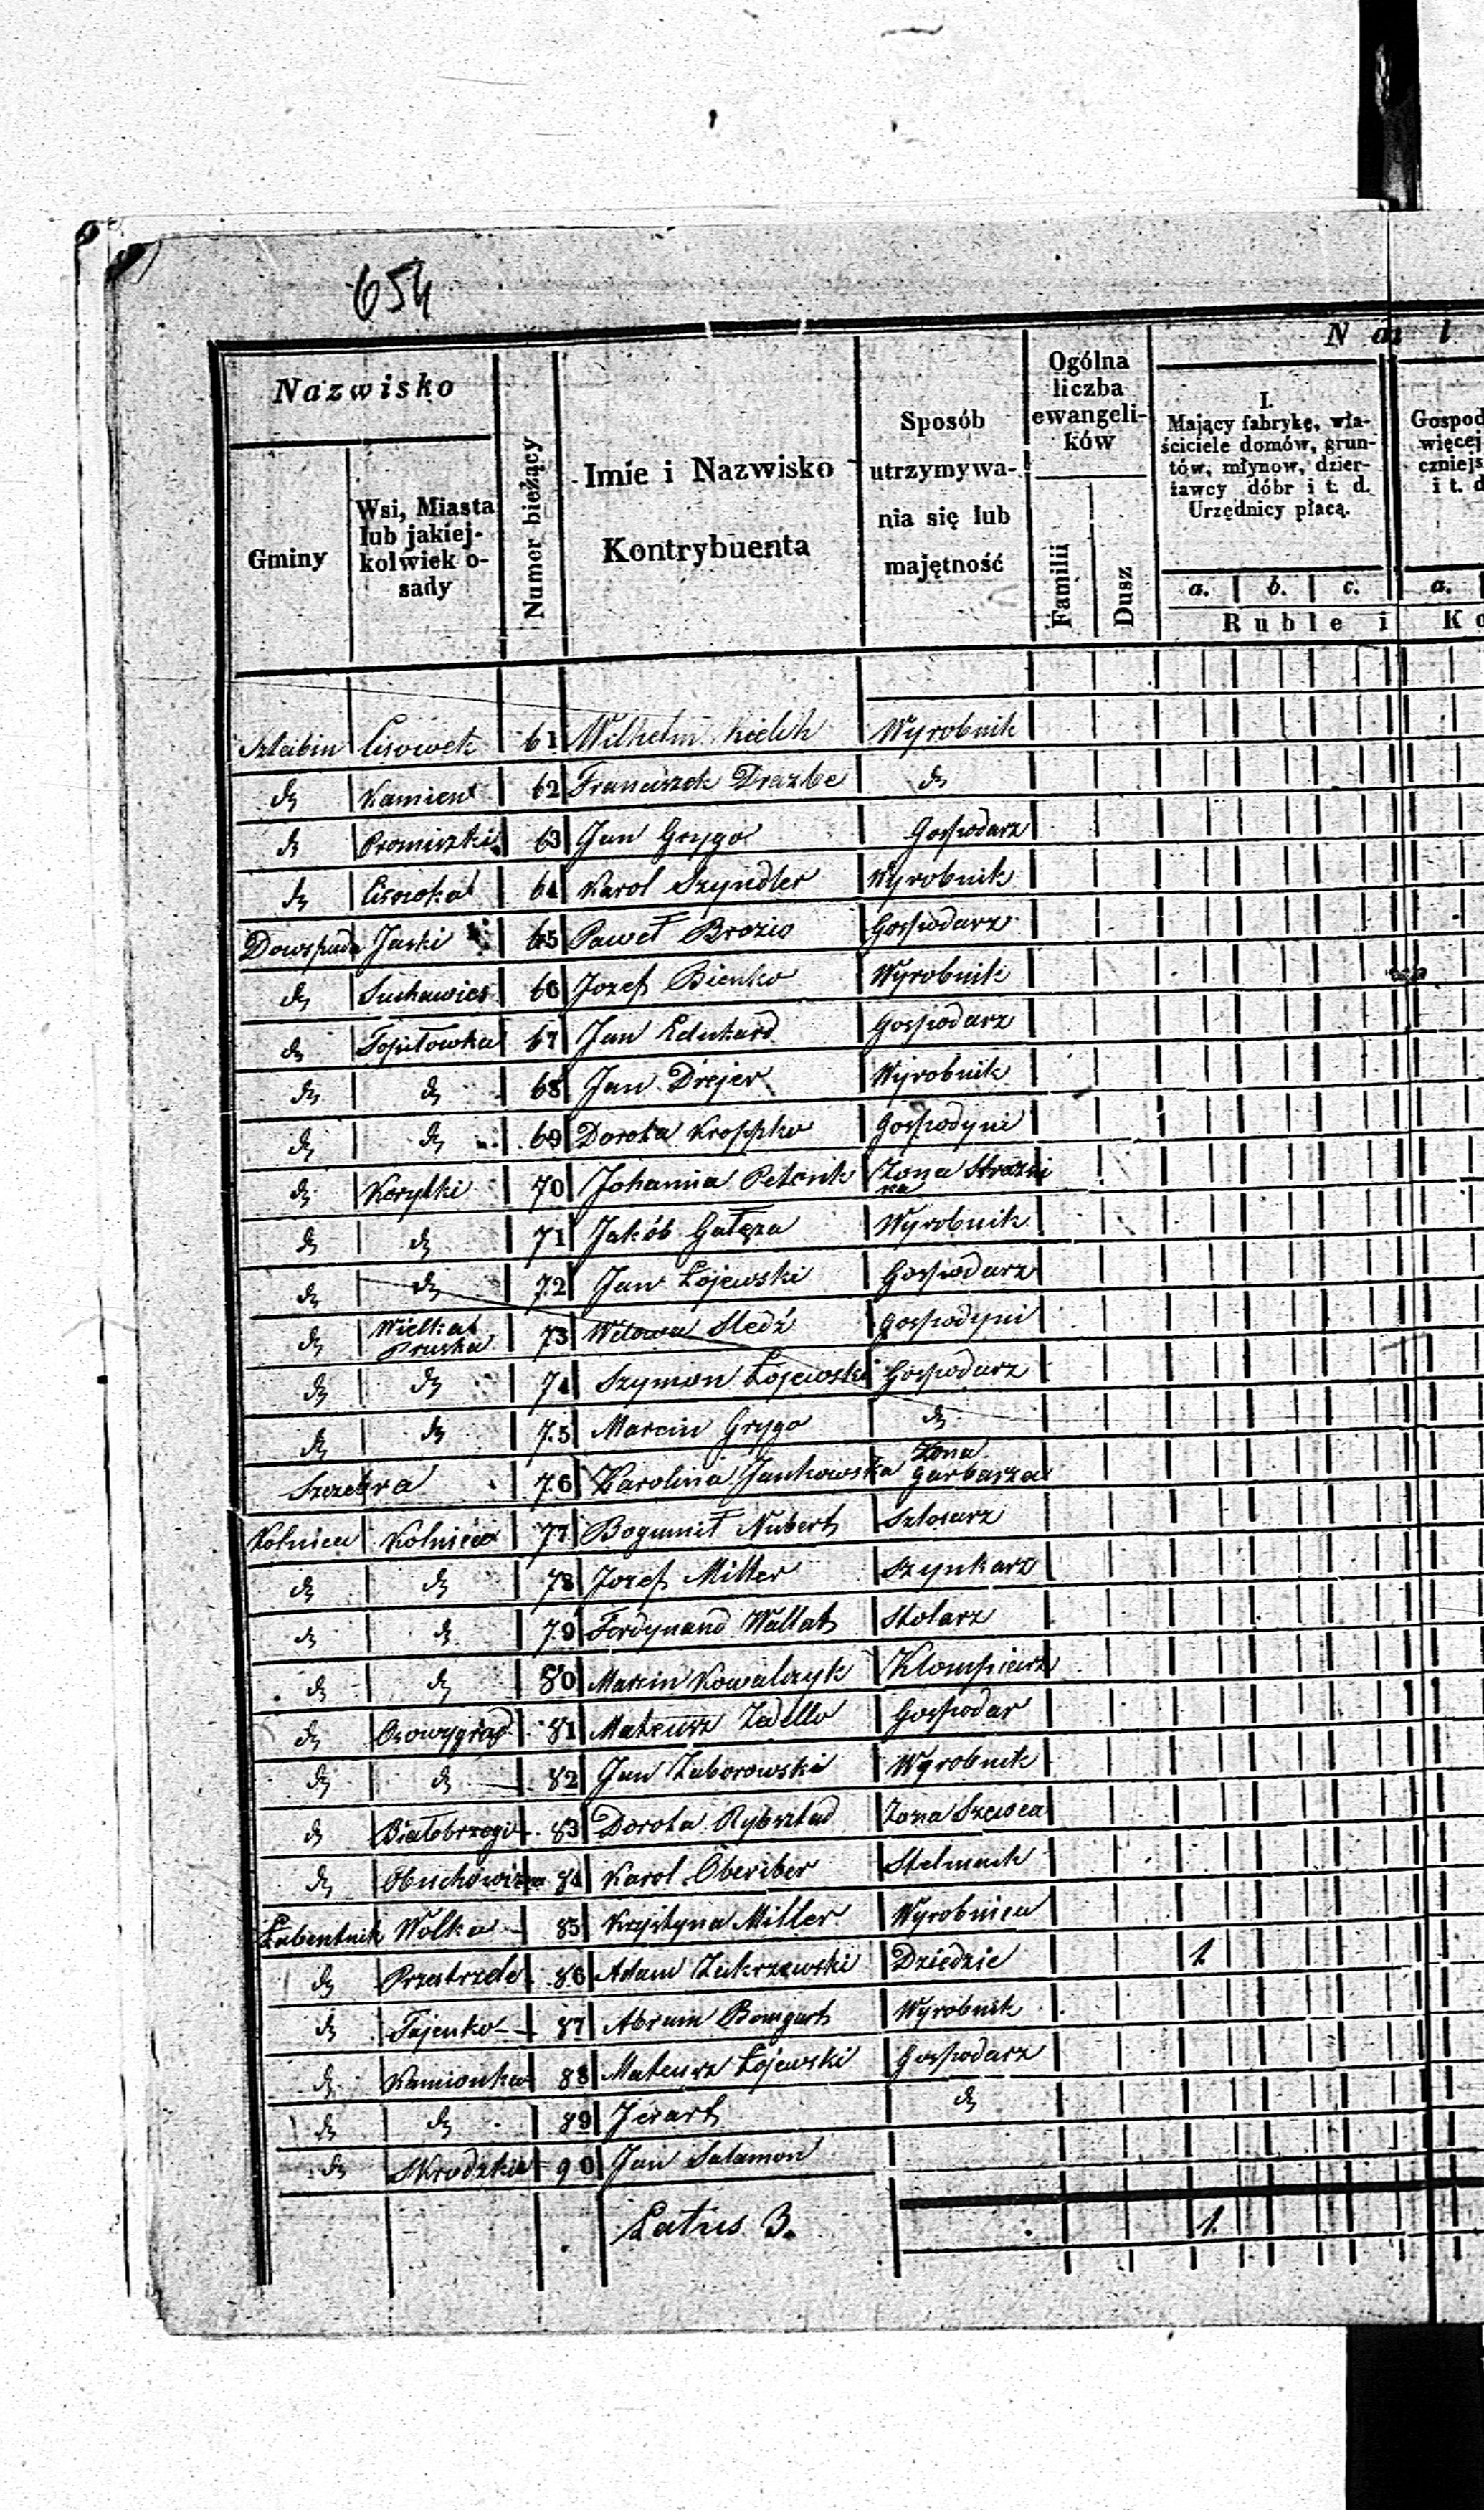 654
Nazwisko
Gminy
Wsi, Miasta
lub jakiej-
kolwiek o-
sady
Numer bieżący
Imie i Nazwisko
Kontrybuenta
Sposób
utrzymywa-
nia się lub
majętność
Ogólna
liczba
ewangeli-
ków
Familii
Dusz
N a l
I.
Mający fabrykę, wła-
ściciele domów, grun-
tów, młynow, dzier-
żawcy dóbr i t. d.
Urzędnicy płacą.
a. b. c.
Gospod
więcej
czniejs
i t. d
a.
Ruble i Ko
Sztabin 61 Wilhelm Wyrobnik
do Kamień 62 Franciszek do
do Promiszki 63 Jan Grygo Gospodarz
do 64 Karol Szyndler Wyrobnik
Dowspuda Jaski 65 Paweł Brozio Gospodarz
do Suchawieś 66 Jozef Bienko Wyrobnik
do Topiłowka 67 Jan Gospodarz
do do 68 Jan Drejer Wyrobnik
do do 69 Dorota Kroppko Gospodyni
do Korytki 70 Johanna Żona Strażni
ka
do do 71 Jakób Gałęza Wyrobnik
do do 72 Jan Łojewski Gospodarz
do Wielka
Pruska 73 Śledź gospodyni
do do 74 Szymon Łojewski Gospodarz
do do 75 Marcin Grygo do
Szczebra 76 Karolina Jankowska Żona
garbarza
Kolnica Kolnica 77 Bogumił Nubert Szlosarz
do do 78 Jozef Miller Szynkarz
do do 79 Ferdynand Wallat Stolarz
do do 80 Marcin Kowalczyk Klompiarz
do Osowygrąd 81 Mateusz Zadello Gospodar
do do 82 Jan Zaborowski Wyrobnik
do Białobrzegi 83 Dorota Rybsztad Zona Szewca
do Obuchowizna 84 Karol Oberiber Stelmach
Łabentnik Wolka 85 Krystyna Miller Wyrobnica
do 86 Adam Zakrzewski Dziedzic 1
do Tajenko 87 Abram Bomgart Wyrobnik
do Kamionka 88 Mateusz Łojewski Gospodarz
do do 89 Jerart do
do Skrodzkie 90 Jan Salamon
Latus 3. 1.